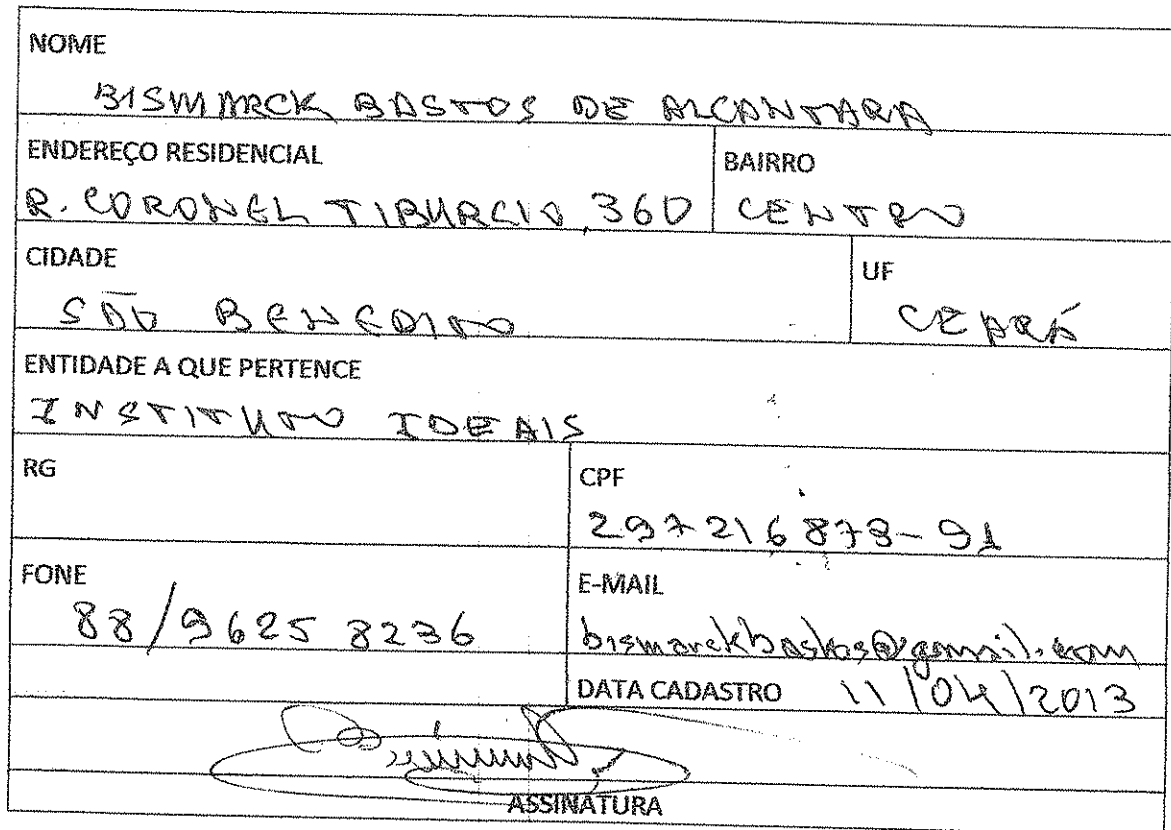 NOME
BISMARCK BASTOS DE ALCANTARA
ENDEREÇO RESIDENCIAL
BAIRRO
R. CORONEL TIBURCIO, 360
CENTRO
CIDADE
UF
SÃO BENEDITO
CEARÁ
ENTIDADE A QUE PERTENCE
INSTITUTO IDEAIS
RG
CPF
297216873-91
FONE
E-MAIL
88/9625 8236
bismarckbastos@gmail.com
DATA CADASTRO 11/04/2013
ASSINATURA